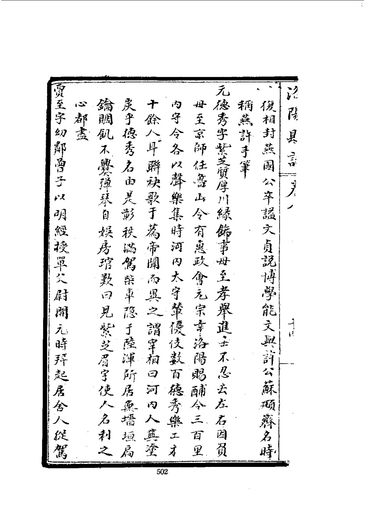 洛陽縣誌
復相封燕國公卒謚文貞説博學能文與許公蘇頲齊名時
稱燕許手筆
元德秀字紫芝質厚少緣飾事母至孝舉進士不忍去左右自負
母至京師任魯山令有惠政會元宗幸洛陽賜酺令三百里
内守令各以聲樂集時河内太守輦優伎數百德秀樂工才
十餘人聯袂歌于蔿帝聞而異之謂宰相曰河内人其塗
炭乎德秀名由是彰秩滿駕柴車隱于陸渾所居無墻垣扃
鑰
不爨彈琴自娱房琯歎曰見紫芝眉宇使人名利之
心都盡
賈至字幼鄰曾子以明經授單父尉開元時拜起居舍人從駕
502